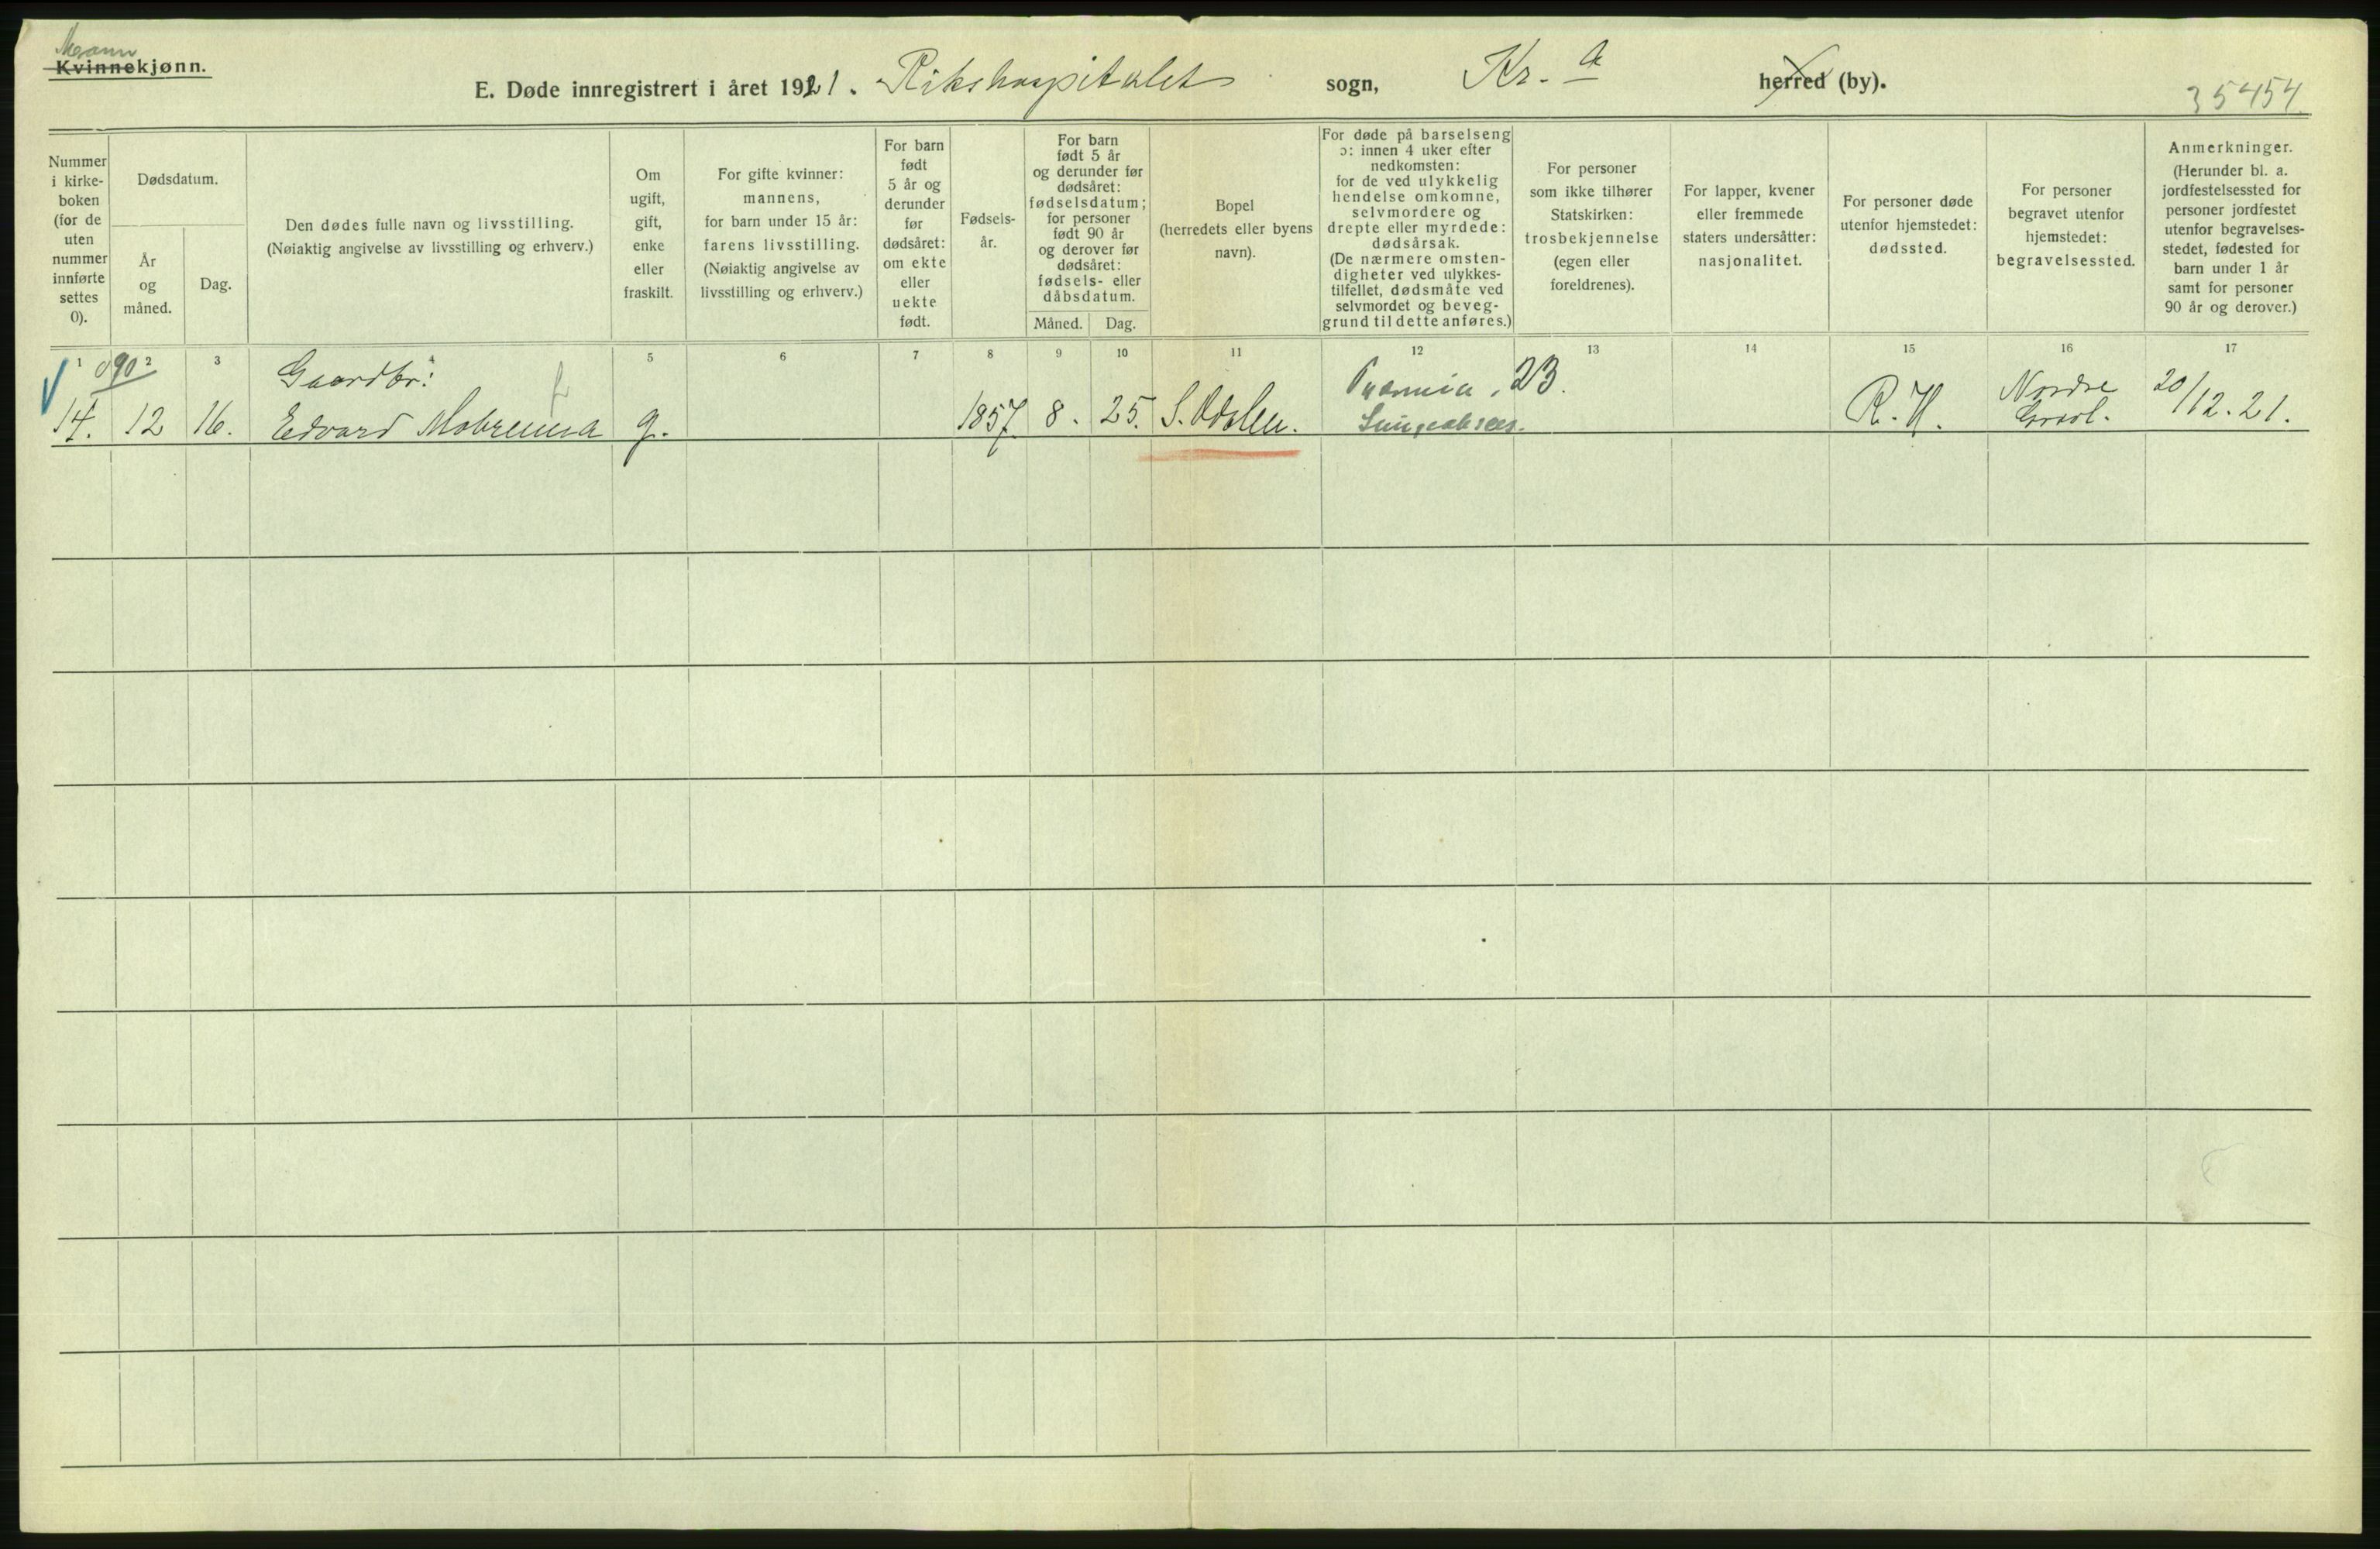 Mann
Kvinnekjønn.
E. Døde innregistrert i året 1921. Rikshospitalet sogn, Kr.a herred (by).
35454
Nummer
i kirke-
boken
(for de
uten
nummer
innførte
settes
0).
Dødsdatum.
År
og
måned.
Dag.
Den dødes fulle navn og livsstilling.
(Nøiaktig angivelse av livsstilling og erhverv.)
Om
ugift,
gift,
enke
eller
fraskilt.
For gifte kvinner:
mannens,
for barn under 15 år:
farens livsstilling.
(Nøiaktig angivelse av
livsstilling og erhverv.)
For barn
født
5 år og
derunder
før
dødsåret:
om ekte
eller
uekte
født.
Fødsels-
år.
For barn
født 5 år
og derunder før
dødsåret:
fødselsdatum;
for personer
født 90 år
og derover før
dødsåret:
fødsels- eller
dåbsdatum.
Måned. Dag.
Bopel
(herredets eller byens
navn).
For døde på barselseng
ɔ: innen 4 uker efter
nedkomsten:
for de ved ulykkelig
hendelse omkomne,
selvmordere og
drepte eller myrdede:
dødsårsak.
(De nærmere omsten-
digheter ved ulykkes-
tilfellet, dødsmåte ved
selvmordet og beveg-
grund til dette anføres.)
For personer
som ikke tilhører
Statskirken:
trosbekjennelse
(egen eller
foreldrenes).
For lapper, kvener
eller fremmede
staters undersåtter:
nasjonalitet.
For personer døde
utenfor hjemstedet:
dødssted.
For personer
begravet utenfor
hjemstedet:
begravelsessted.
Anmerkninger.
(Herunder bl. a.
jordfestelsessted for
personer jordfestet
utenfor begravelses-
stedet, fødested for
barn under 1 år
samt for personer
90 år og derover.)
1 2 3 4 5 6 7 8 9 10 11 12 13 14 15 16 17
90
Gaardbr: 23. Nordre 20/12.21.
14. 12 16. Edvard g. 1857 8. 25. S. Odalen. R.H. Gravl.